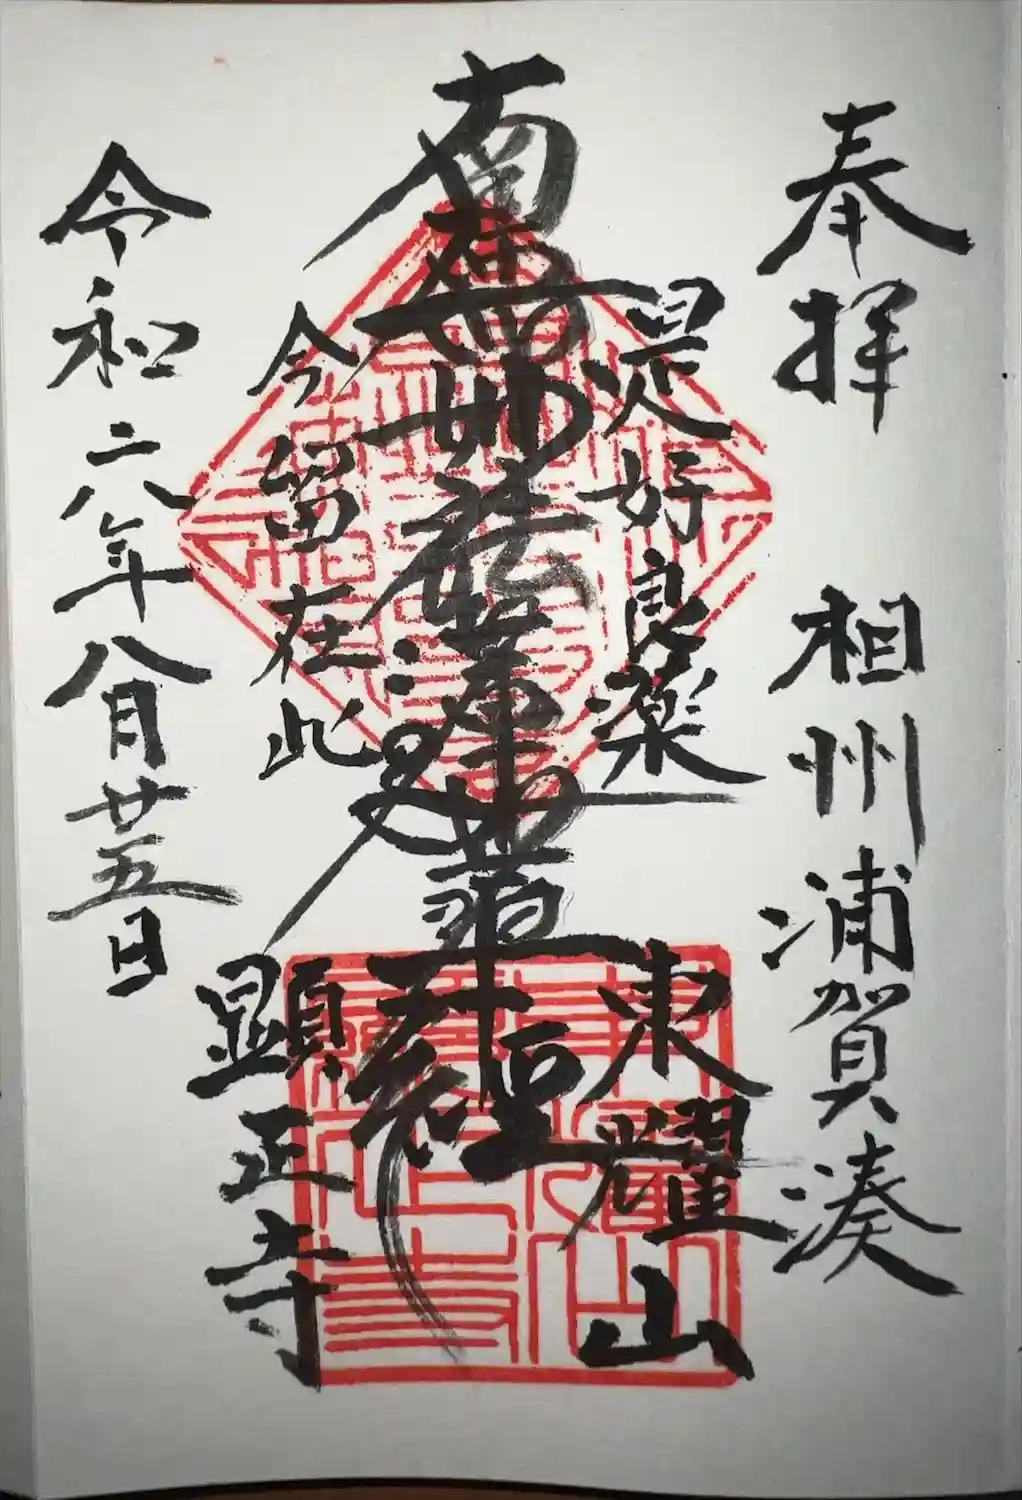 奉拝 相州浦賀湊
是好良薬
東耀山
南無妙法蓮華経
今留在此
顕正寺
令和六年八月廿五日